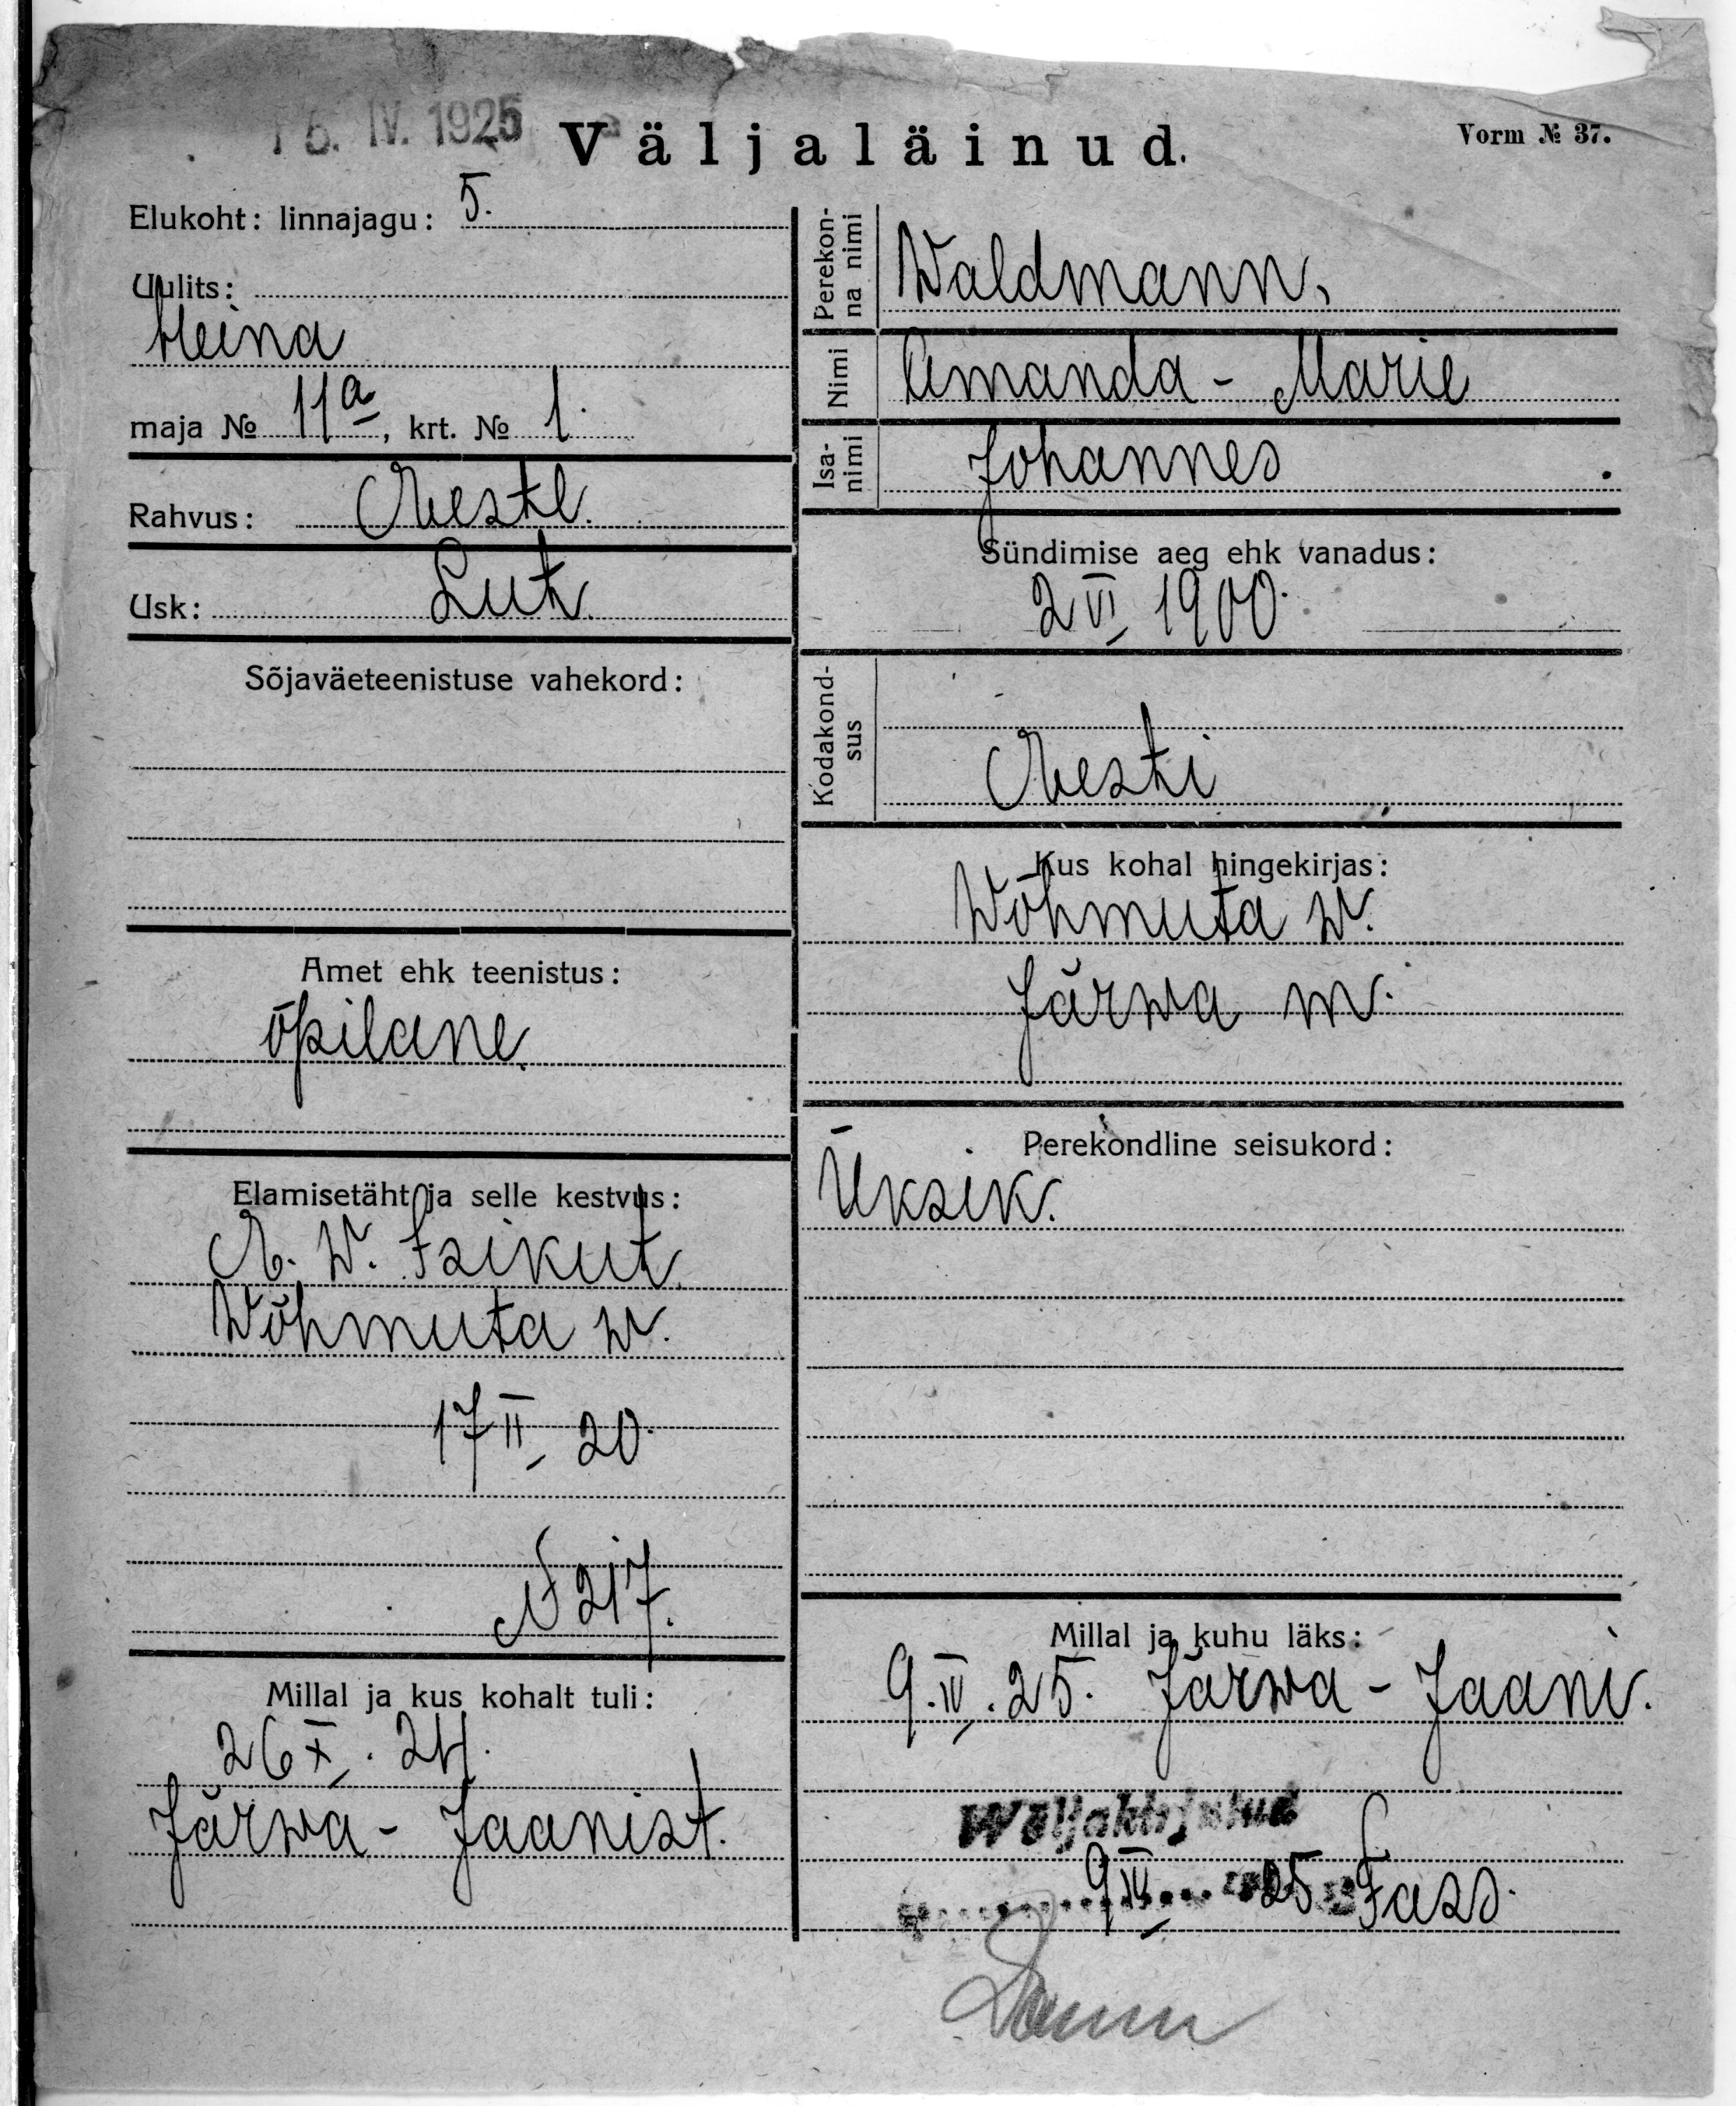 15. IV. 1925
Väljaläinud.
Vorm № 37.
Elukoht: linnajagu: 5.
Uulits:
Heina
maja № 11a, krt. № 1.
Rahvus: Eestl.
Usk: Lut.
Sõjaväeteenistuse vahekord:
Amet ehk teenistus:
õpilane
Elamisetäht ja selle kestvus:
E. W. Isikut.
Wõhmuta w.
17 II 20.
N 217.
Millal ja kus kohalt tuli:
26 X. 24.
Järwa - Jaanist.
Perekonna nimi
Waldmann,
Nimi
Amanda - Marie
Isanimi
Johannes
Sündimise aeg ehk vanadus:
2 VI 1900.
Kodakondsus
Eesti
Kus kohal hingekirjas:
Wõhmuta w.
Järwa m.
Perekondline seisukord:
Üksik.
Millal ja kuhu läks:
9. IV. 25. Järwa - Jaani.
Wäljakirjutud
9 IV 25